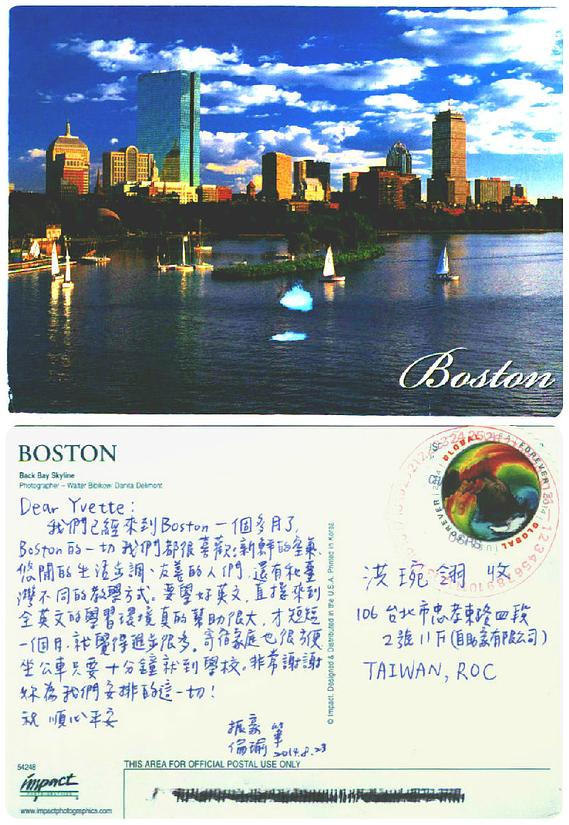 Boston
BOSTON
Back Bay Skyline
Photographer - Walter Bibikow/ Danita Delimont
Dear Yvette:
我們已經來到Boston一個多月了,
Boston的一切我們都很喜歡:新鮮的空氣、
悠閒的生活步調、友善的人們,還有和臺
灣不同的教學方式。要學好英文,直接來到
全英文的學習環境真的幫助很大,才短短
一個月,就覺得進步很多。寄宿家庭也很方便,
坐公車只要十分鐘就到學校。非常謝謝
妳為我們安排的這一切!
祝 順心平安
振豪
倫瑜 筆
2014.8.23
© Impact. Designed & Distributed in the U.S.A. Printed in Korea.
GLOBAL FOREVER
GLOBAL FOREVER
USPS
洪琬翎 收
106 台北市忠孝東路四段
2號11F
TAIWAN, ROC
54248
impact
www.impactphotographics.com
THIS AREA FOR OFFICIAL POSTAL USE ONLY